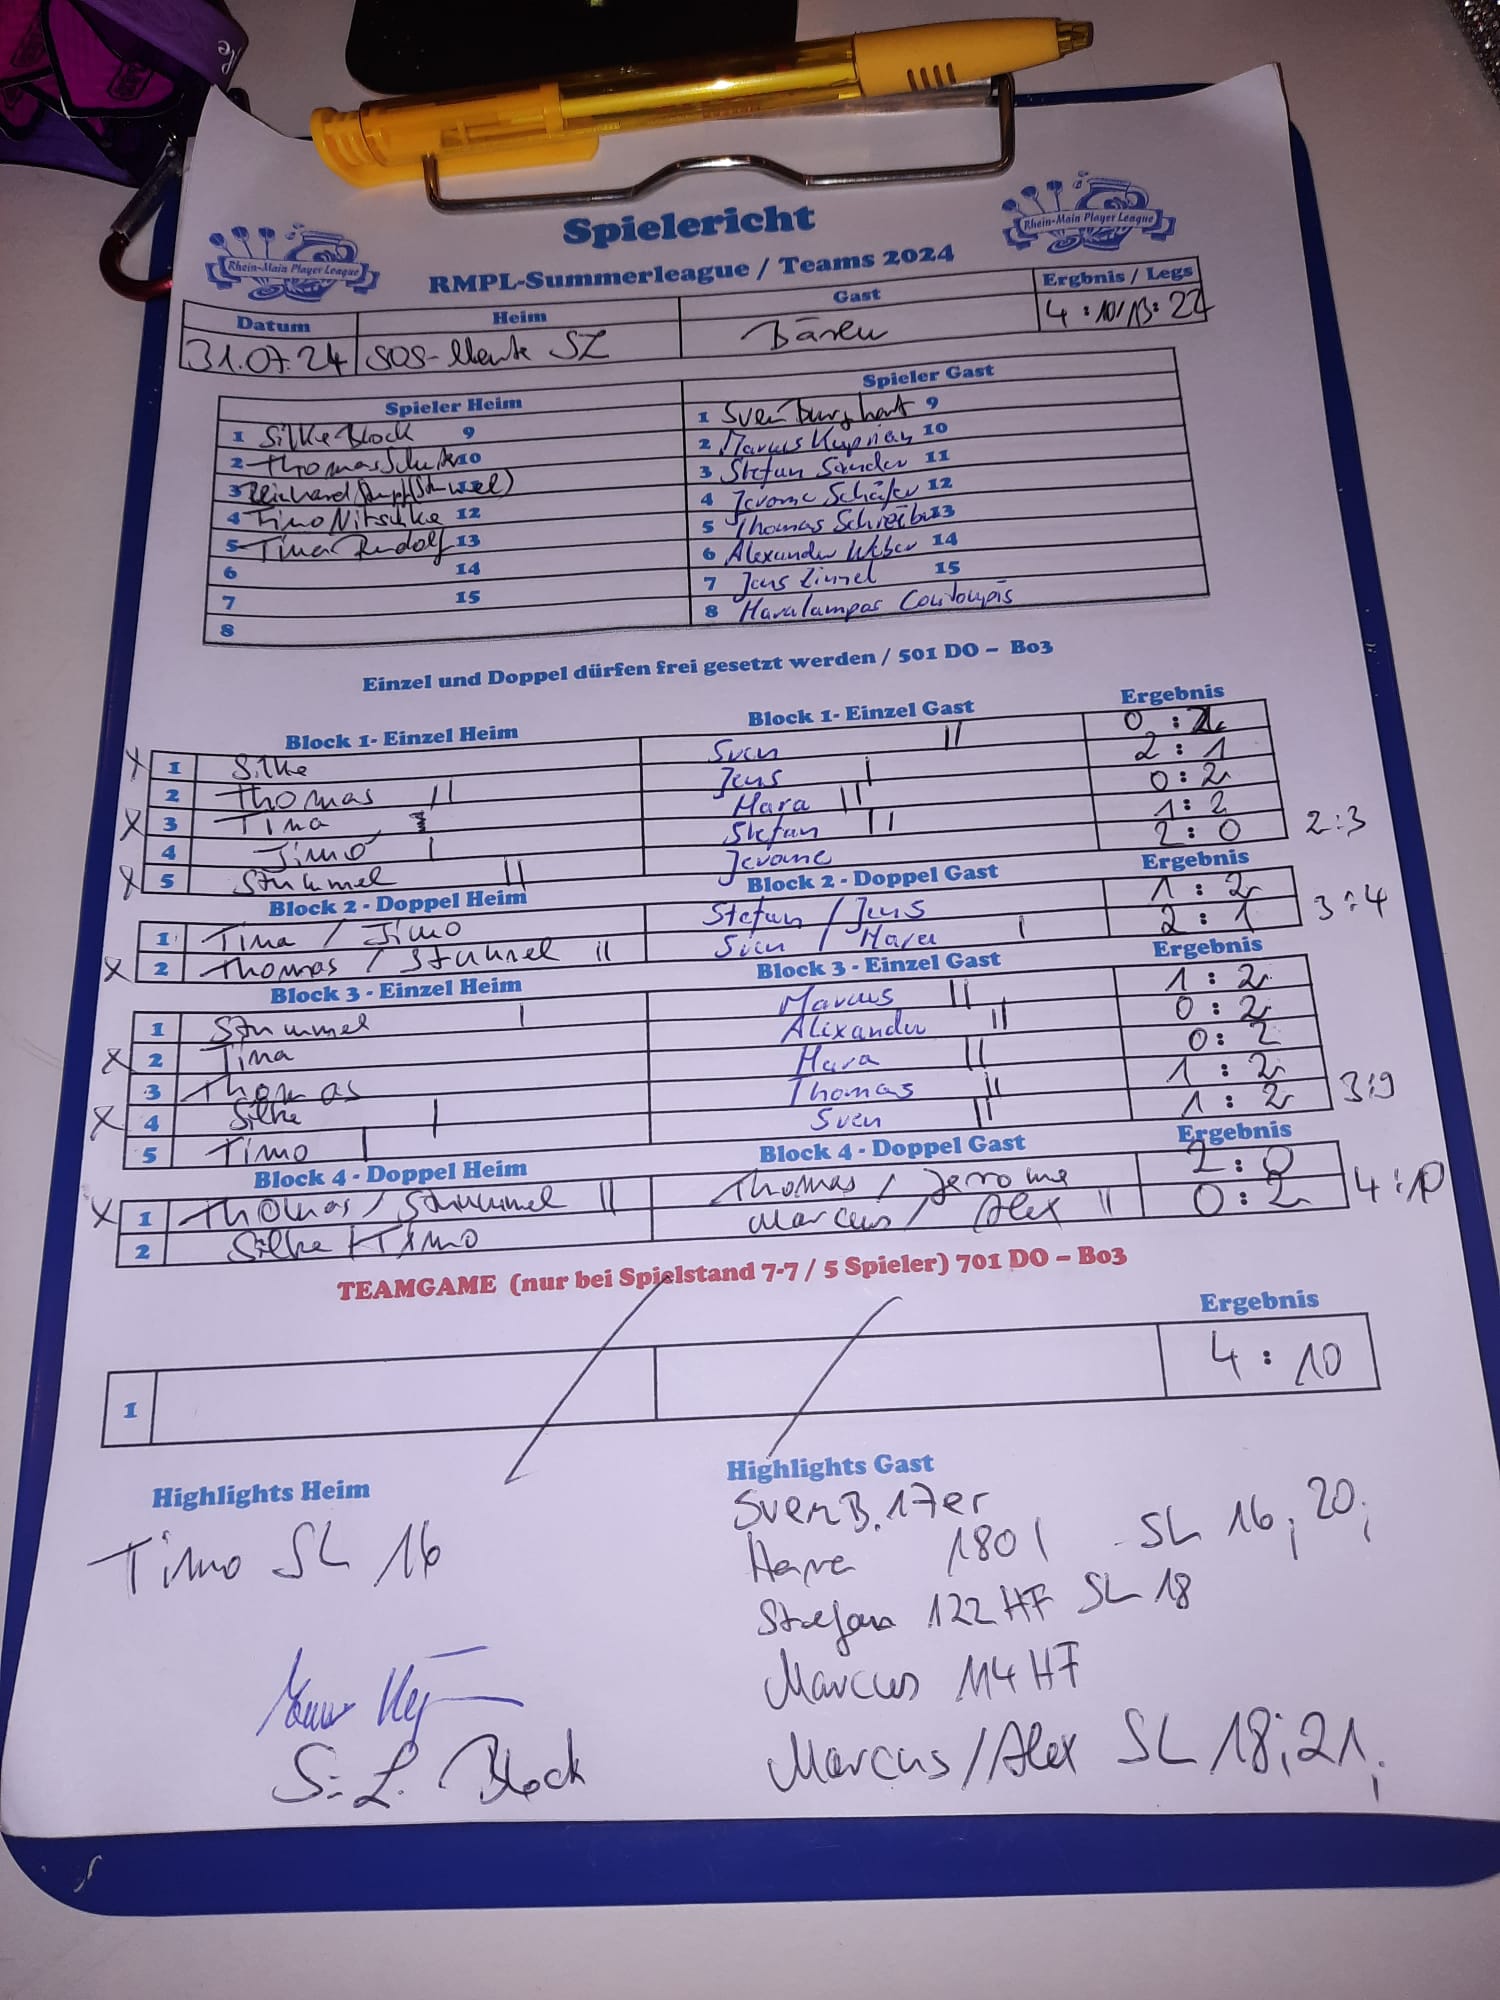 Spielericht
Rhein-Main Player League
Rhein-Main Player League
RMPL-Summerleague / Teams 2024
Datum Heim Gast Ergbnis / Legs
31.07.24 SOS-Meute SZ Bären 4:10/13:
Spieler Heim Spieler Gast
1 Silke Block 9 1 Sven Burghart 9
2 Thomas 10 2 Marcus Kuprian 10
3 Reinhard 3 Stefan Sander 11
4 Timo Nitschke 12 4 Jerome Schäfer 12
5 Tina Rudolf 13 5 Thomas Schreiber 13
6 14 6 Alexander Weber 14
7 15 7 Jens Zinnel 15
8 8 Haralampos
Einzel und Doppel dürfen frei gesetzt werden / 501 DO – Bo3
Block 1- Einzel Heim Block 1- Einzel Gast Ergebnis
X 1 Silke Sven || 0 : 2
2 Thomas || Jens | 2 : 1
X 3 Tina Hara || 0 : 2
4 Timo | Stefan || 1 : 2
X 5 Stummel || Jerome 2 : 0 2:3
Block 2 - Doppel Heim Block 2 - Doppel Gast Ergebnis
1 Tina / Timo Stefan / Jens 1 : 2
X 2 Thomas / Stummel || Sven / Hara | 2 : 1 3:4
Block 3 - Einzel Heim Block 3 - Einzel Gast Ergebnis
1 Stummel | Marcus || 1 : 2
X 2 Tina Alexander || 0 : 2
3 Thomas Hara || 0 : 2
X 4 Silke | Thomas || 1 : 2
5 Timo | Sven || 1 : 2 3:9
Block 4 - Doppel Heim Block 4 - Doppel Gast Ergebnis
X 1 Thomas / Stummel || Thomas / Jerome 2 : 0
2 Silke / Timo Marcus / Alex || 0 : 2 4:10
TEAMGAME (nur bei Spielstand 7-7 / 5 Spieler) 701 DO – Bo3
Ergebnis
1 4 : 10
Highlights Heim Highlights Gast
Timo SL 16 Sven B. 17er
Hara 180 | SL 16, 20;
Stefan 122 HF SL 18
Marcus 114 HF
S. L. Block Marcus / Alex SL 18; 21;